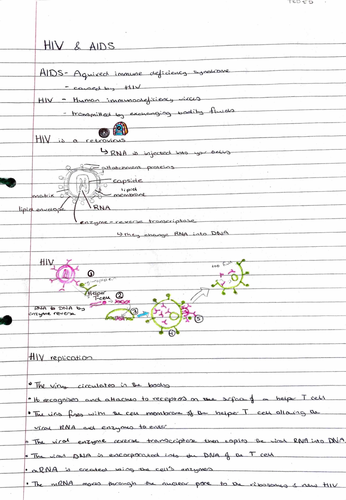 HIV & AIDS
AIDS - Aquired immune deficiency syndrome
- caused by HIV
HIV - Human immunodeficiency virus
- transmitted by exchanging bodily fluids
HIV is a retrovirus
↳ RNA is injected into your cells
attachment proteins
capside
lipid
matrix
membrane
lipid envelope
RNA
enzyme - reverse transcriptase
↳ they change RNA into DNA
HIV
①
helper
T-cell
②
RNA to DNA by
enzyme reverse
③
④
⑤
HIV replication
• The virus circulates in the body
• It recognises and attaches to receptors on the surface of a helper T cell
• The virus fuses with the cell membrane of the helper T cell allowing the
viral RNA and enzymes to enter
• The viral enzyme reverse transcriptase then copies the viral RNA into DNA
• The viral DNA is encorporated into the DNA of the T cell
• mRNA is created using the cell's enzymes
• The mRNA moves through the nuclear pore to the ribosomes & new HIV